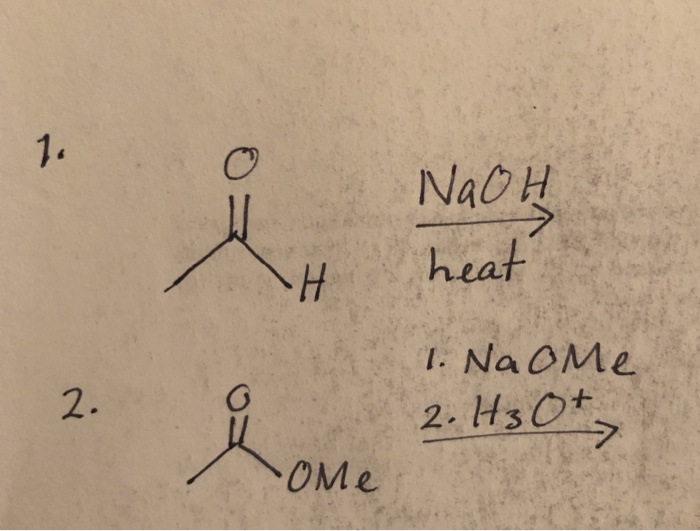 1.
O
H
NaOH
heat
2.
O
OMe
1. NaOMe
2. H3O+